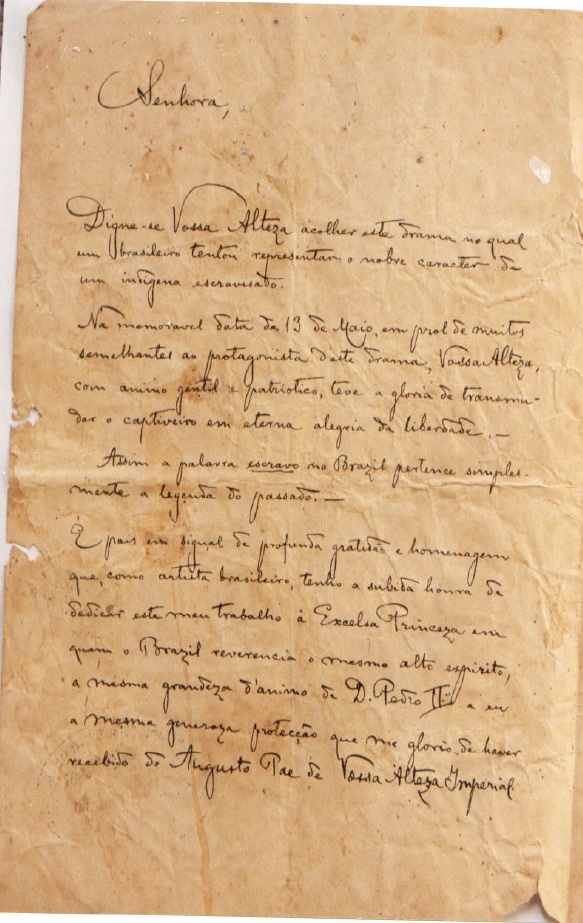 Senhora,
Digne-se Vossa Alteza acolher este drama no qual
um brasileiro tentou representar o nobre caracter de
um indigena escravisado.
Na memoravel data da 13 de Maio, em prol de muitos
semelhantes ao protagonista d'este drama, Vossa Alteza,
com animo gentil e patriotico, teve a gloria de transmu-
dar o captiveiro em eterna alegria da liberdade. —
Assim a palavra escravo no Brazil pertence simples-
mente a legenda do passado. —
É pois em signal de profunda gratidão e homenagem
que, como artista brasileiro, tenho a subida honra de
dedicar este meu trabalho à Excelsa Princeza em
quem o Brazil reverencia o mesmo alto espirito,
a mesma grandeza d'animo de D. Pedro II, e eu
a mesma generoza protecção que me glorio de haver
recebido do Augusto Pae de Vossa Alteza Imperial.